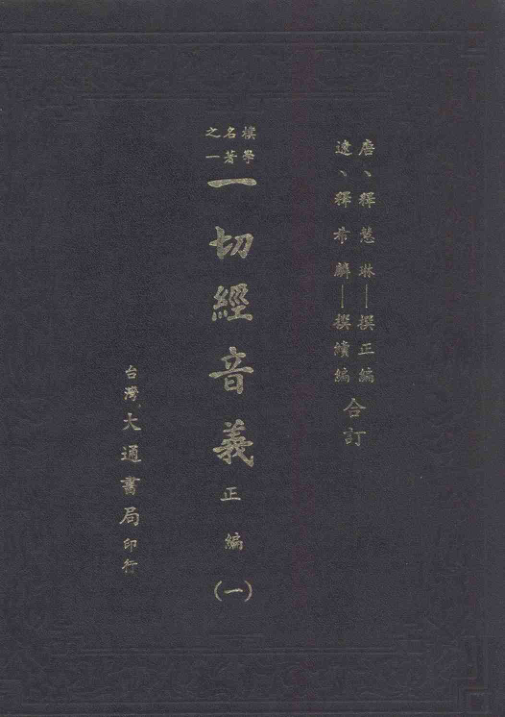 唐、釋慧琳—撰正編
遼、釋希麟—撰續編
合訂
樸學
名著
之一
一切經音義
正編
(一)
台灣大通書局印行